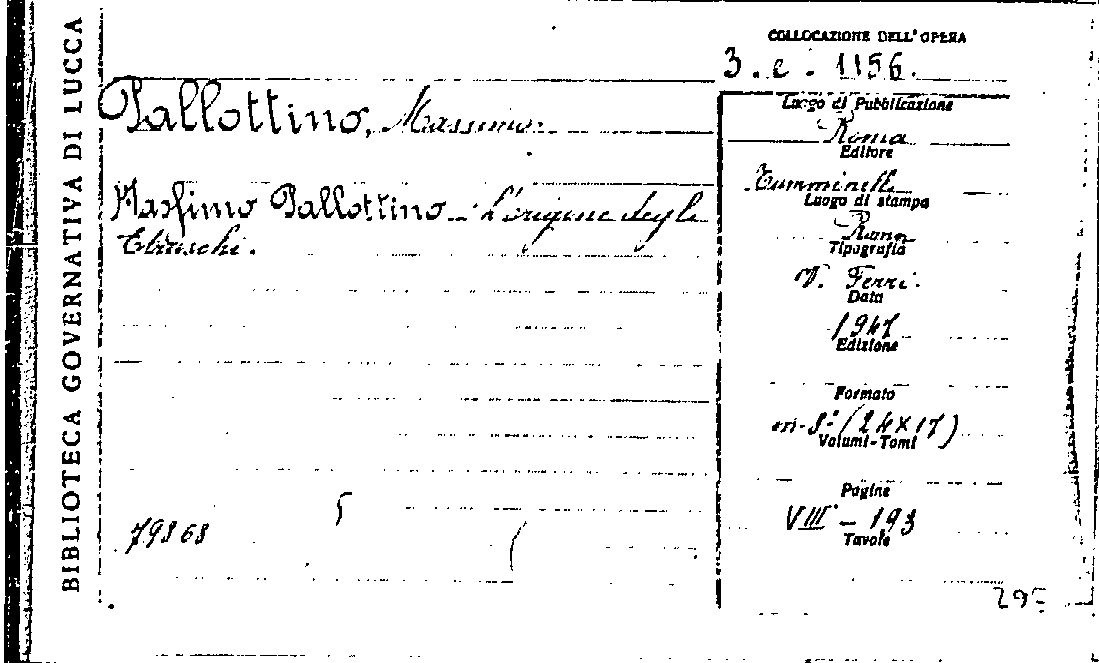 BIBLIOTECA GOVERNATIVA DI LUCCA
COLLOCAZIONE DELL'OPERA
3. e. 1156.
Pallottino, Massimo.
Luogo di Pubblicazione
Roma
Editore
Tumminelli
Massimo Pallottino - L'origine degli
Etruschi.
Luogo di stampa
Roma
Tipografia
V. Ferri.
Data
1947
Edizione
Formato
in-8° (24x17)
Volumi-Tomi
Pagine
VIII - 193
Tavole
79868